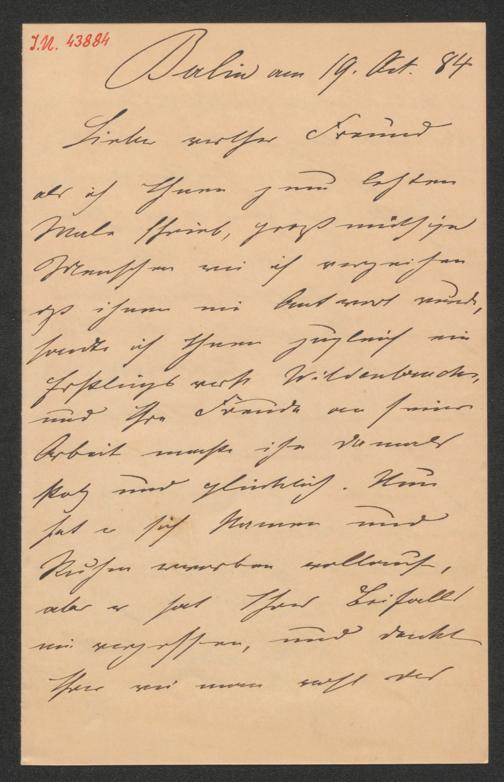 I.N. 43884
Berlin am 19. Oct. 84
Lieber werther Freund
als ich Ihnen zum letzten
Male schrieb, großmüthige
Menschen wie ich verzeihen
es ihnen nie Antwort wurde,
sandte ich Ihnen zugleich ein
Erstlingswerk Wildenbruchs,
und Ihre Freude an seiner
Arbeit machte ihn damals
stolz und glücklich. Nun
hat er sich Namen und
Ruhm erworben vollauf,
aber er hat Ihres Beifalls
nie vergessen, und denkt
Ihrer wie man wohl der